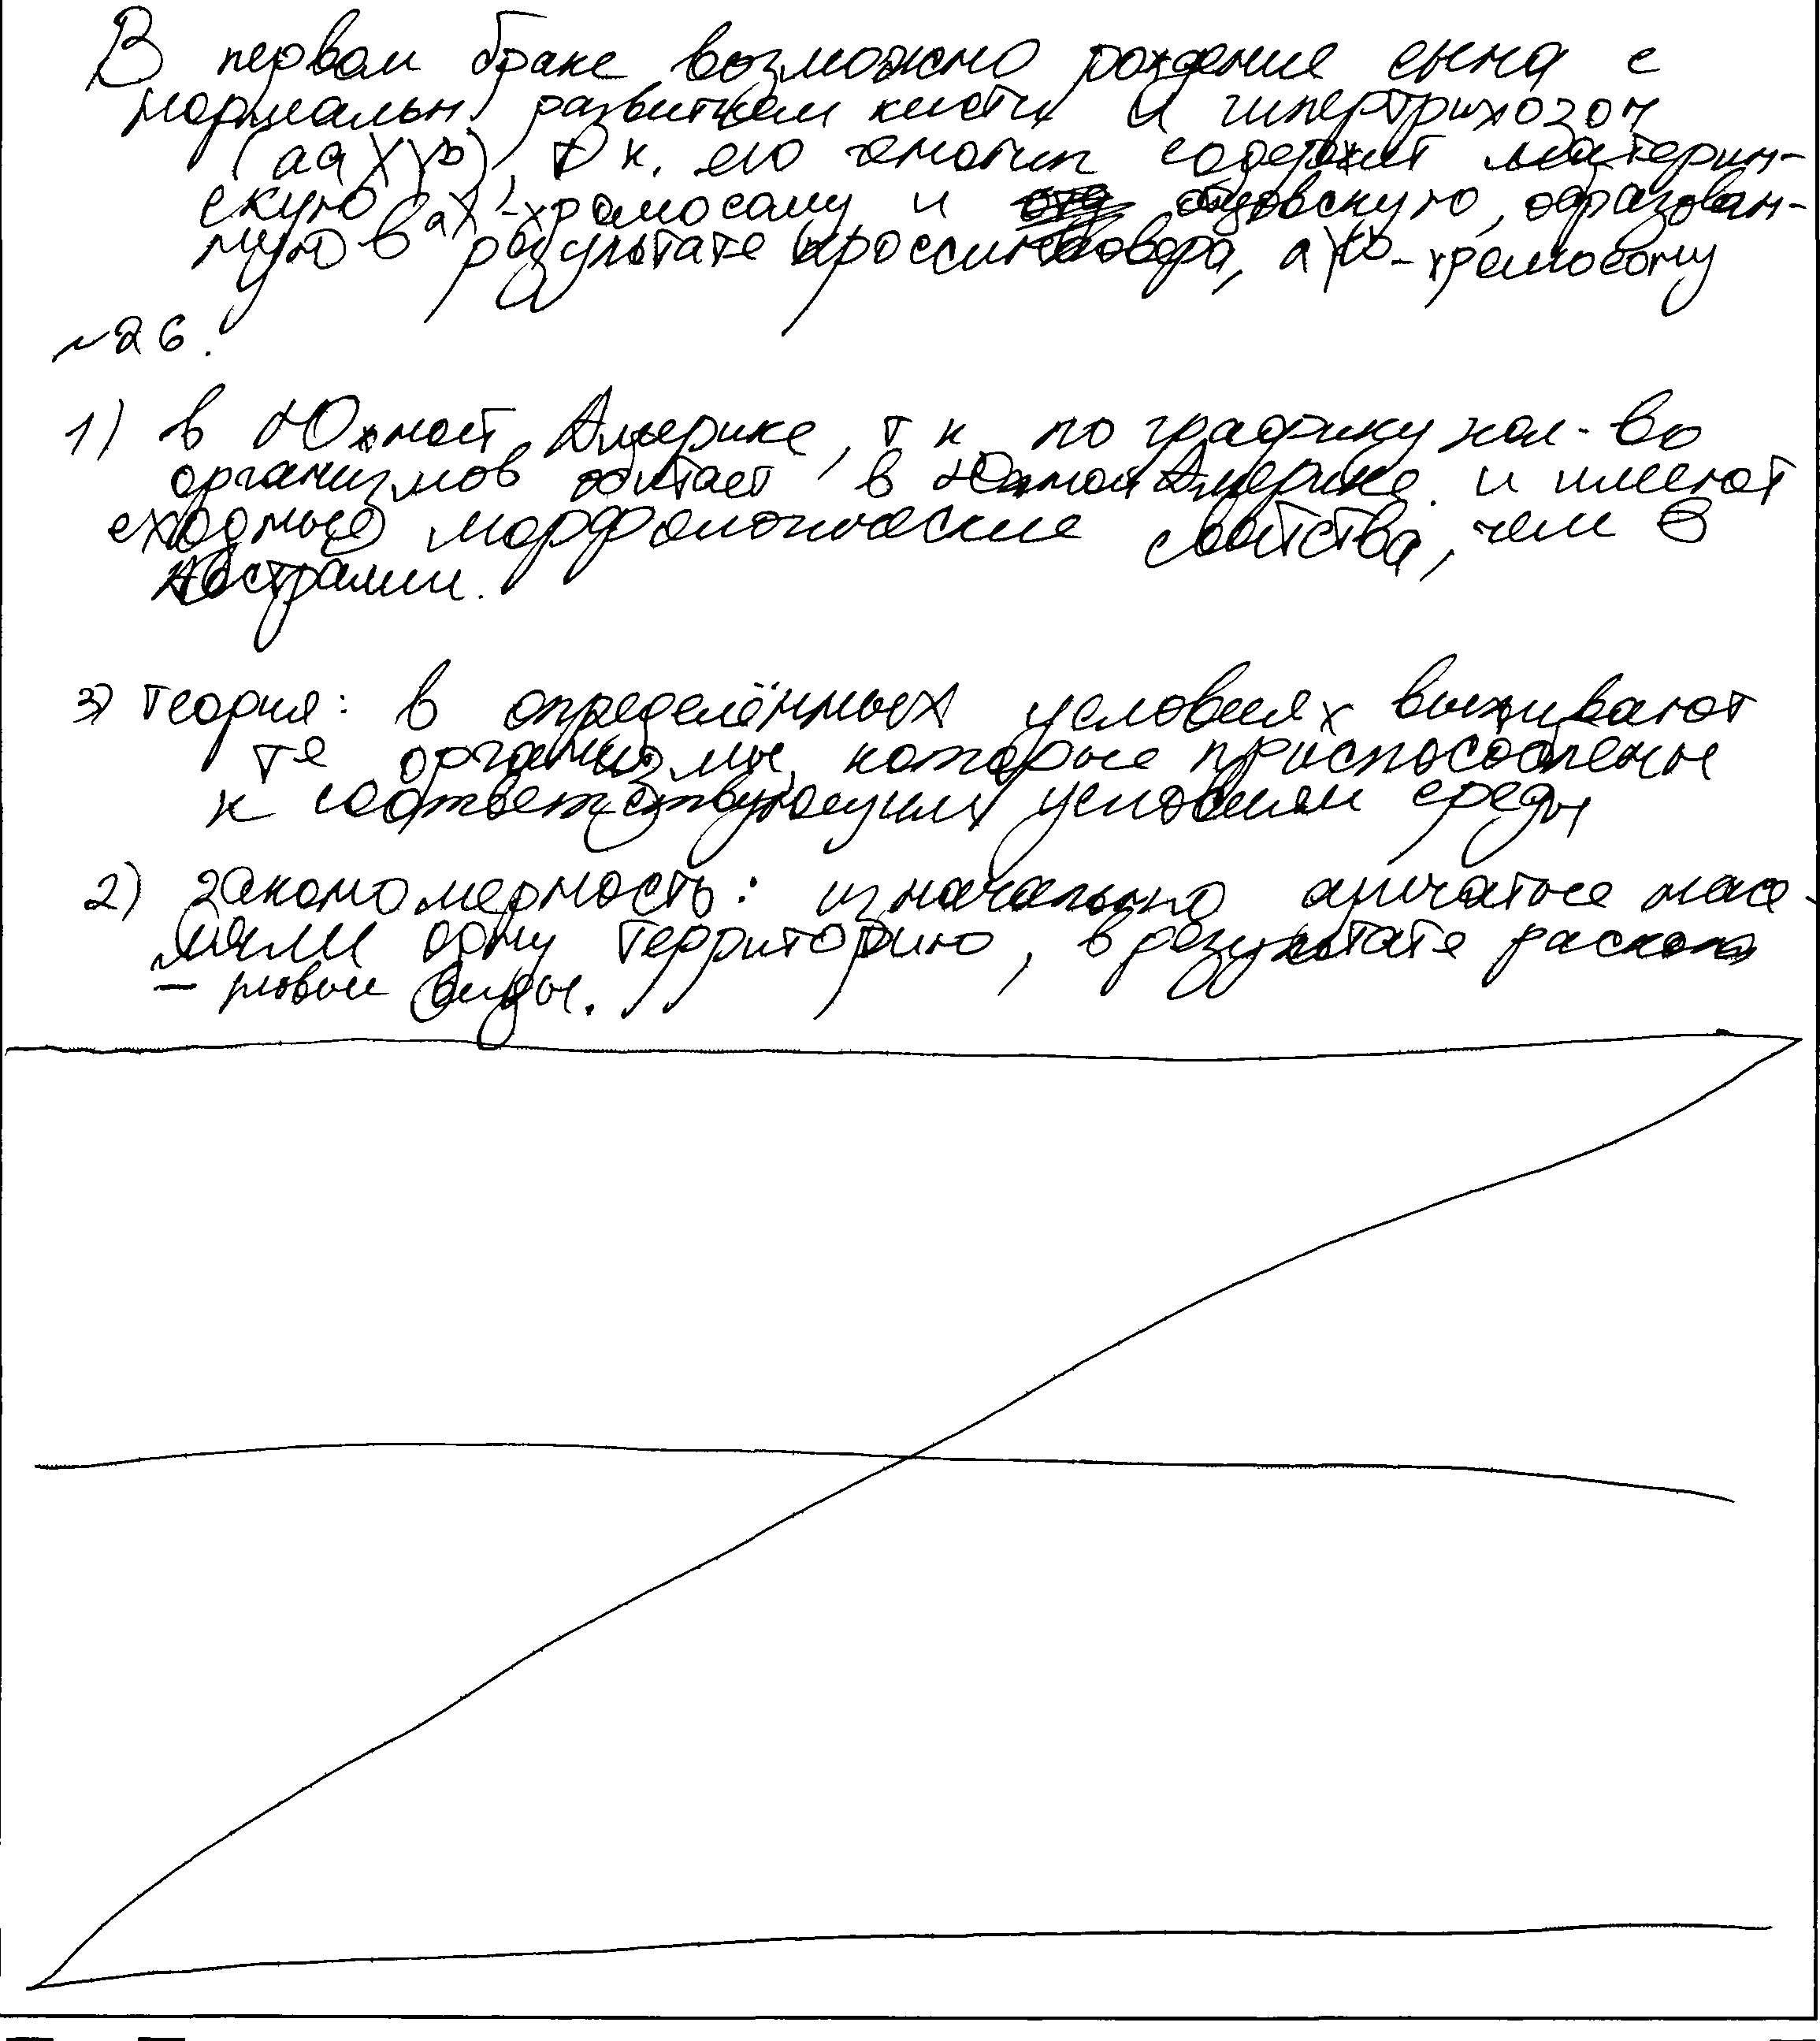 В первом браке возможно рождение сына с
нормальн. развитием кисти и гипертрихозом
(aaXYᵇ), т к. его генотип содержит материн-
скую aX-хромосому и отцовскую, образован-
ную в результате кроссинговера, aYᵇ-хромосому
№26.
1) в Южной Америке, т к по графику кол-во
организмов обитает в Южной Америке и имеют
сходные морфологические свойства, чем в
Австралии.
3) теория: в определённых условиях выживают
те организмы, которые приспособлены
к соответствующим условиям среды
2) закономерность: изначально насе-
ляли одну территорию, в результате раскола
– новые виды.